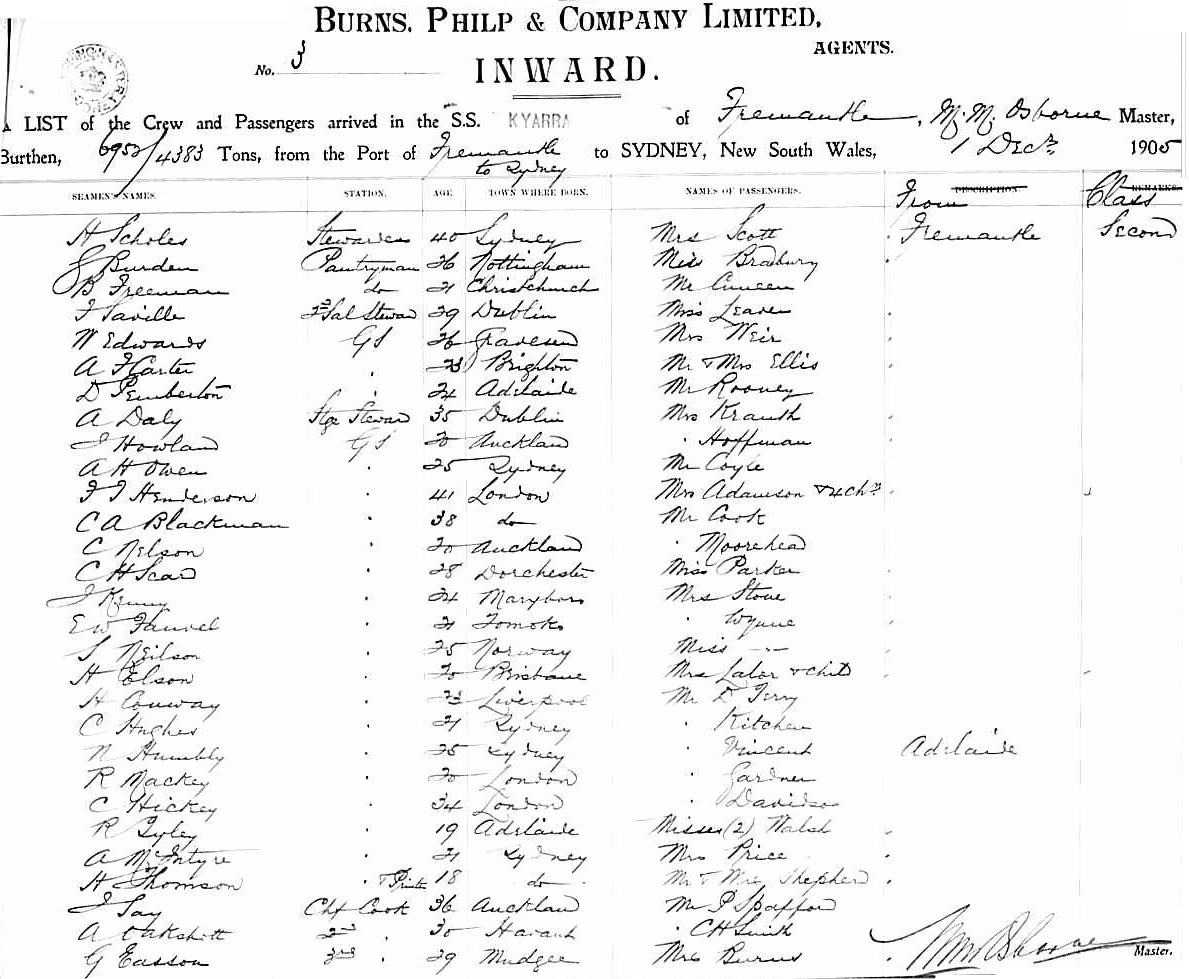 BURNS, PHILP & COMPANY LIMITED,
AGENTS.
No. 3
INWARD.
A LIST of the Crew and Passengers arrived in the S.S. KYARRA of Fremantle, Master,
Burthen, 6952/4383 Tons, from the Port of Fremantle to Sydney to SYDNEY, New South Wales, 1 Decr 1905
SEAMEN'S NAMES. STATION. AGE TOWN WHERE BORN. NAMES OF PASSENGERS. DESCRIPTION. From REMARKS. Class
H Scholes Stewardess 40 Sydney Mrs Scott . Fremantle Second
Burden Pantryman 26 Nottingham Miss Bradbury .
B Freeman do 21 Christchurch Mr
F Saville 29 Dublin Leaver .
W Edwards GS 26 Gravesend Mrs Weir .
A F Carter . 23 Brighton Mr & Mrs Ellis .
D Pemberton . 24 Adelaide Mr Rooney .
A Daly Stge Steward 35 Dublin Mrs Krauth .
J Howland GS 20 Auckland . Hoffman
A H Owen . 25 Sydney Mr Coyle
F J Henderson . 41 London Mrs Adamson & 4 chn .
C A Blackman . 38 do Mr Cook
C Nelson . 20 Auckland . Moorehead
C H Scard . 28 Dorchester Miss Parker .
J Kenny . 24 Maryboro Mrs Stone .
E W . 21 . Wynne .
S Neilson . 25 Norway Miss -- .
H Elson . 20 Brisbane Mrs Lalor & child .
H Conway . 23 Liverpool Mr D Terry
C Hughes . 21 Sydney . Kitchen
N Humbly . 25 Sydney . Vincent Adelaide
R Mackey . 20 London . Gardner
C Hickey . 34 London . Davidson
R Syley . 19 Adelaide Misses (2) Walsh .
A McIntyre . 21 Sydney Mrs Price .
H Thomson . & Printer 18 do Mr & Mrs Shepherd .
J Say Chf Cook 36 Auckland Mr P Spafford
A Oakshott 2nd . 30 Havant . C H Smith
G Easson 3rd . 29 Mudgee Mrs Burns . Master.